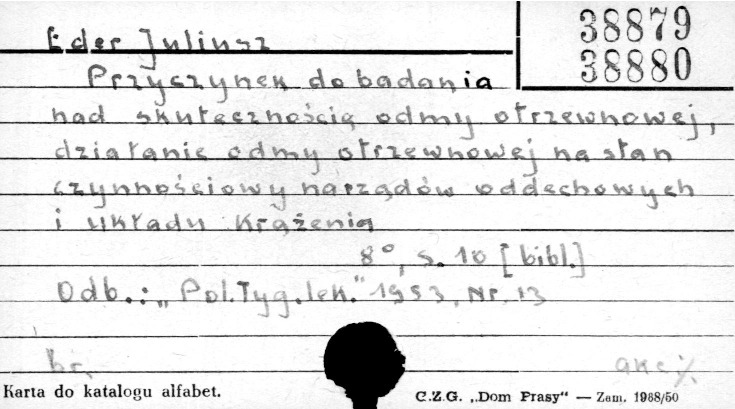 38879
38880
Eder Juliusz
Przyczynek do badania
nad skutecznością odmy otrzewnowej,
działanie odmy otrzewnowej na stan
czynnościowy narządów oddechowych
i układu krążenia
8°, s. 10 [bibl.]
Odb.: „Pol.Tyg.lek." 1953, Nr. 13
br.
akc %.
Karta do katalogu alfabet.
C.Z.G. „Dom Prasy" — Zam. 1968/50